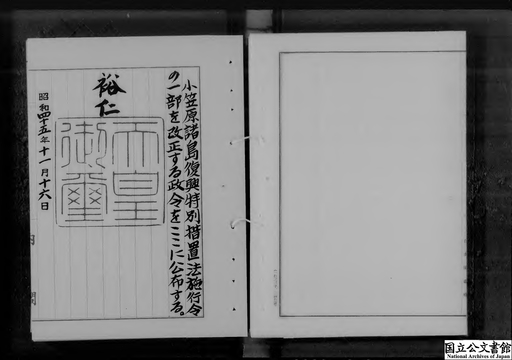 小笠原諸島復興特別措置法施行令
の一部を改正する政令をここに公布する。
裕仁
天皇
御璽
昭和四十五年十一月十六日
内閣
国立公文書館
National Archives of Japan